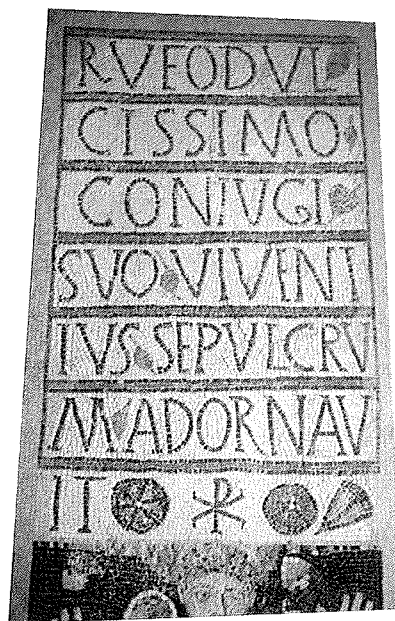 RVFODVL
CISSIMO
CONIVGI
SVO VIVENT
IVS SEPVLCRV
M ADORNAV
IT ☧